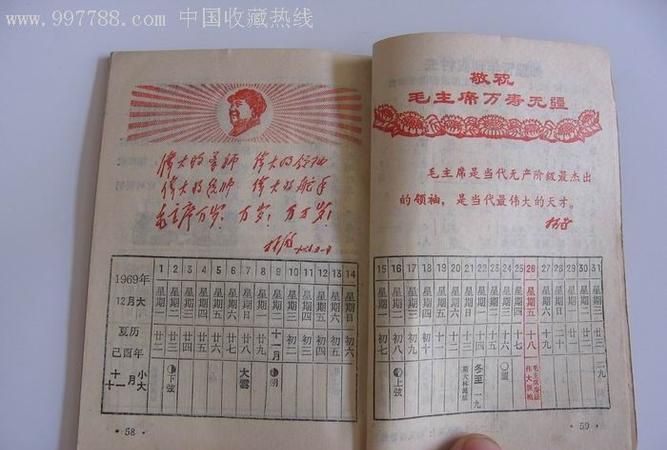 www.997788.com 中国收藏热线
伟大的导师 伟大的领袖
伟大的统帅 伟大的舵手
毛主席万岁！万岁！万万岁！
林彪
1969年 1 2 3 4 5 6 7 8 9 10 11 12 13 14
12月大 星期一 星期二 星期三 星期四 星期五 星期六 星期日 星期一 星期二 星期三 星期四 星期五 星期六 星期日
夏历己酉年 廿二 廿三 廿四 廿五 廿六 廿七 廿八 廿九 十一月 初二 初三 初四 初五 初六
十月小
十一月大
下弦 大雪 朔
·58·
敬祝
毛主席万寿无疆
毛主席是当代无产阶级最杰出
的领袖，是当代最伟大的天才。
林彪
15 16 17 18 19 20 21 22 23 24 25 26 27 28 29 30 31
星期一 星期二 星期三 星期四 星期五 星期六 星期日 星期一 星期二 星期三 星期四 星期五 星期六 星期日 星期一 星期二 星期三
初七 初八 初九 初十 十一 十二 十三 十四 十五 十六 十七 十八 十九 二十 廿一 廿二 廿三
上弦 斯大林诞辰 冬至 一九 望 毛主席诞辰 伟大领袖 二九
·59·